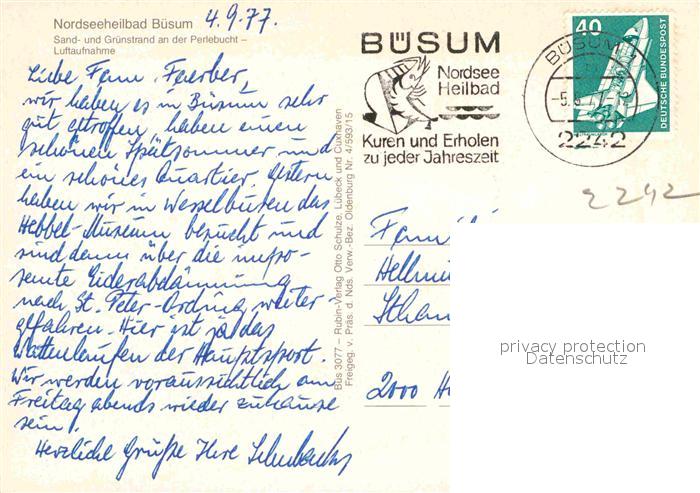 Nordseeheilbad Büsum 4.9.77.
Sand- und Grünstrand an der Perlebucht –
Luftaufnahme
Liebe Fam. Faerber,
wir haben es in Büsum sehr
gut getroffen, haben einen
schönen Spätsommer und
ein schönes Quartier. Gestern
haben wir in Wesselburen das
Hebbel-Museum besucht und
sind dann über die impo-
sante Eiderabdämmung
nach St. Peter-Ording weiter-
gefahren. Hier ist ja das
Wattenlaufen der Hauptsport.
Wir werden voraussichtlich am
Freitag abends wieder zuhause
sein.
Herzliche Grüße Ihre
Büs 3077 – Rubin-Verlag Otto Schulze, Lübeck und Cuxhaven
Freigeg. v. Präs. d. Nds. Verw.-Bez. Oldenburg Nr. 4/593/15
BÜSUM
Nordsee
Heilbad
Kuren und Erholen
zu jeder Jahreszeit
BÜSUM
2242
40
DEUTSCHE BUNDESPOST
2242
Fam
2000
privacy protection
Datenschutz